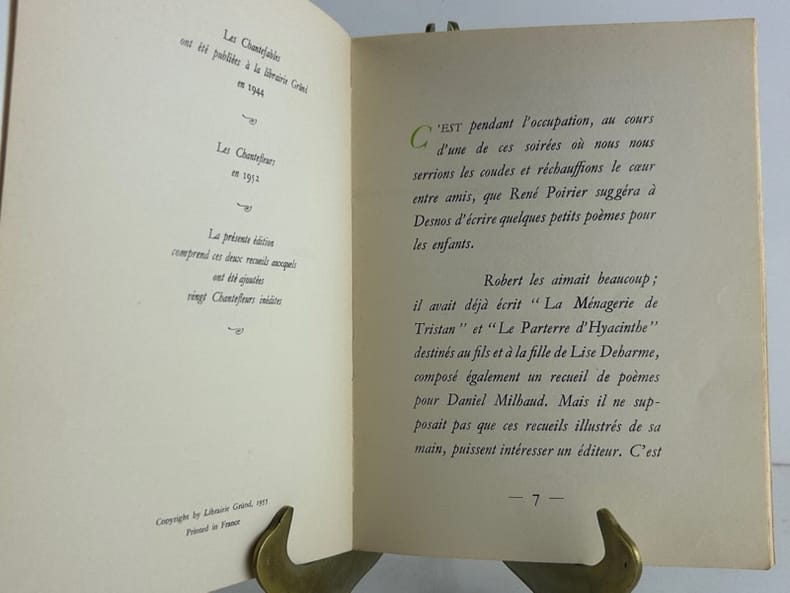 Les Chantefables
ont été publiées à la librairie Gründ
en 1944
Les Chantefleurs
en 1952
La présente édition
comprend ces deux recueils auxquels
ont été ajoutées
vingt Chantefleurs inédites
Copyright by Librairie Gründ, 1955
Printed in France
C'EST pendant l'occupation, au cours
d'une de ces soirées où nous nous
serrions les coudes et réchauffions le cœur
entre amis, que René Poirier suggéra à
Desnos d'écrire quelques petits poèmes pour
les enfants.
Robert les aimait beaucoup ;
il avait déjà écrit “ La Ménagerie de
Tristan ” et “ Le Parterre d'Hyacinthe ”
destinés au fils et à la fille de Lise Deharme,
composé également un recueil de poèmes
pour Daniel Milhaud. Mais il ne sup-
posait pas que ces recueils illustrés de sa
main, puissent intéresser un éditeur. C'est
— 7 —